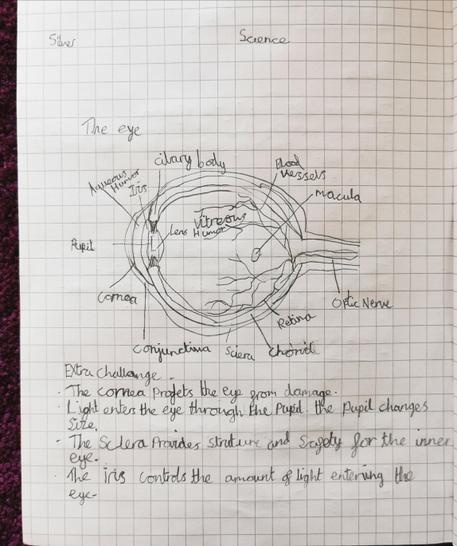 Silver
Science
The eye
Ciliary body
Blood
Vessels
Aqueous
Humor
Iris
Macula
Vitreous
Humor
Lens
Pupil
Cornea
Optic Nerve
Retina
Conjunctiva
Sclera
Choroid
Extra Challange -
· The cornea protets the eye from damage.
· Light enters the eye through the Pupil. the Pupil changes
Size.
· The Sclera Provides struture and Safety for the inner
eye.
· The iris controls the amount of light entering the
eye.